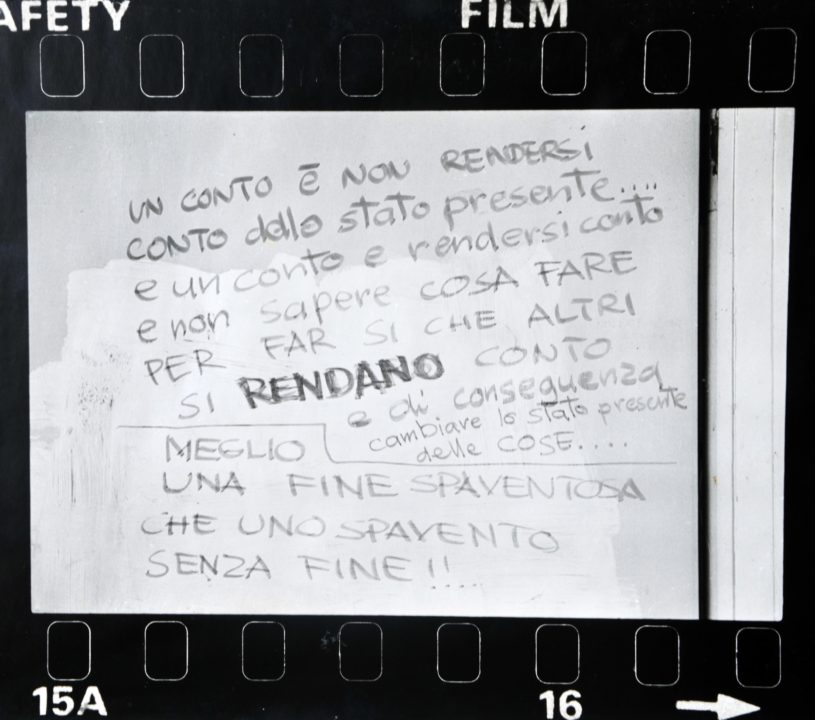 AFETY FILM
UN CONTO Ē NON RENDERSI
CONTO dello stato presente....
e un conto e rendersi conto
e non sapere COSA FARE
PER FAR SI CHE ALTRI
SI RENDANO CONTO
e di conseguenza
cambiare lo stato presente
delle COSE....
MEGLIO
UNA FINE SPAVENTOSA
CHE UNO SPAVENTO
SENZA FINE!!....
15A 16